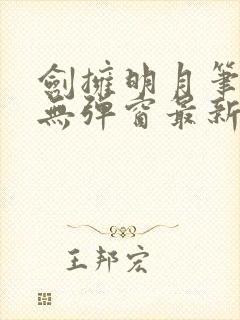 劍擁明月筆
無彈窗最新
王邦宏